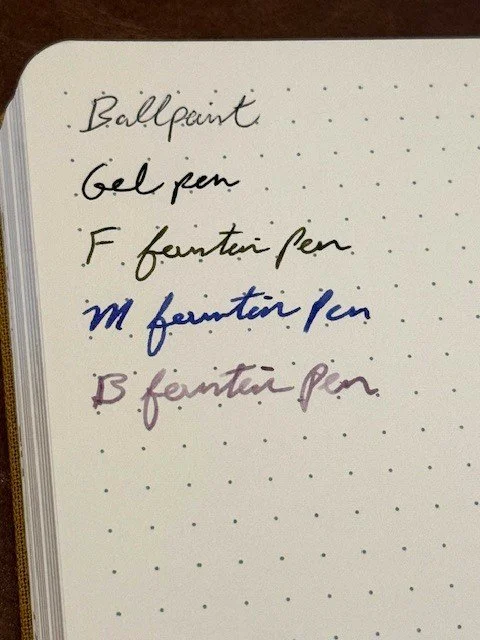 Ballpoint
Gel pen
F fountain pen
M fountain pen
B fountain pen